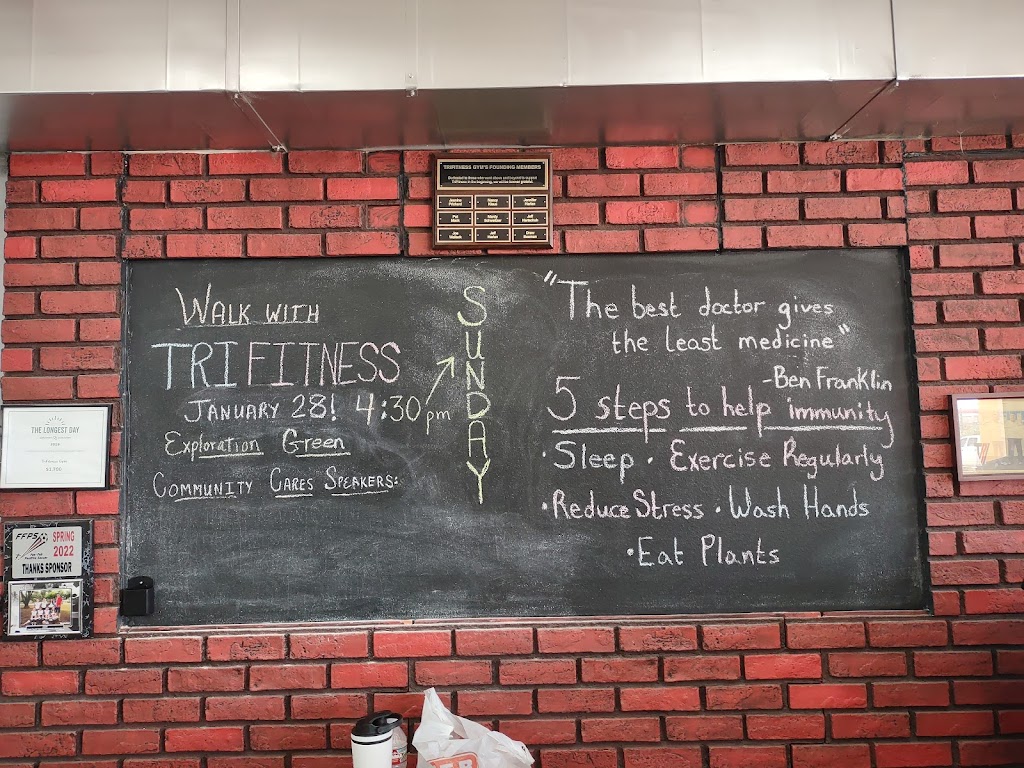 TRIFITNESS GYM'S FOUNDING MEMBERS
WALK WITH
TRIFITNESS
JANUARY 28! 4:30pm
Exploration Green
COMMUNITY CARES SPEAKERS:
SUNDAY
"The best doctor gives
the least medicine"
-Ben Franklin
5 steps to help immunity
· Sleep · Exercise Regularly
· Reduce Stress · Wash Hands
· Eat Plants
THE LONGEST DAY
FFPS
SPRING
2022
THANKS SPONSOR